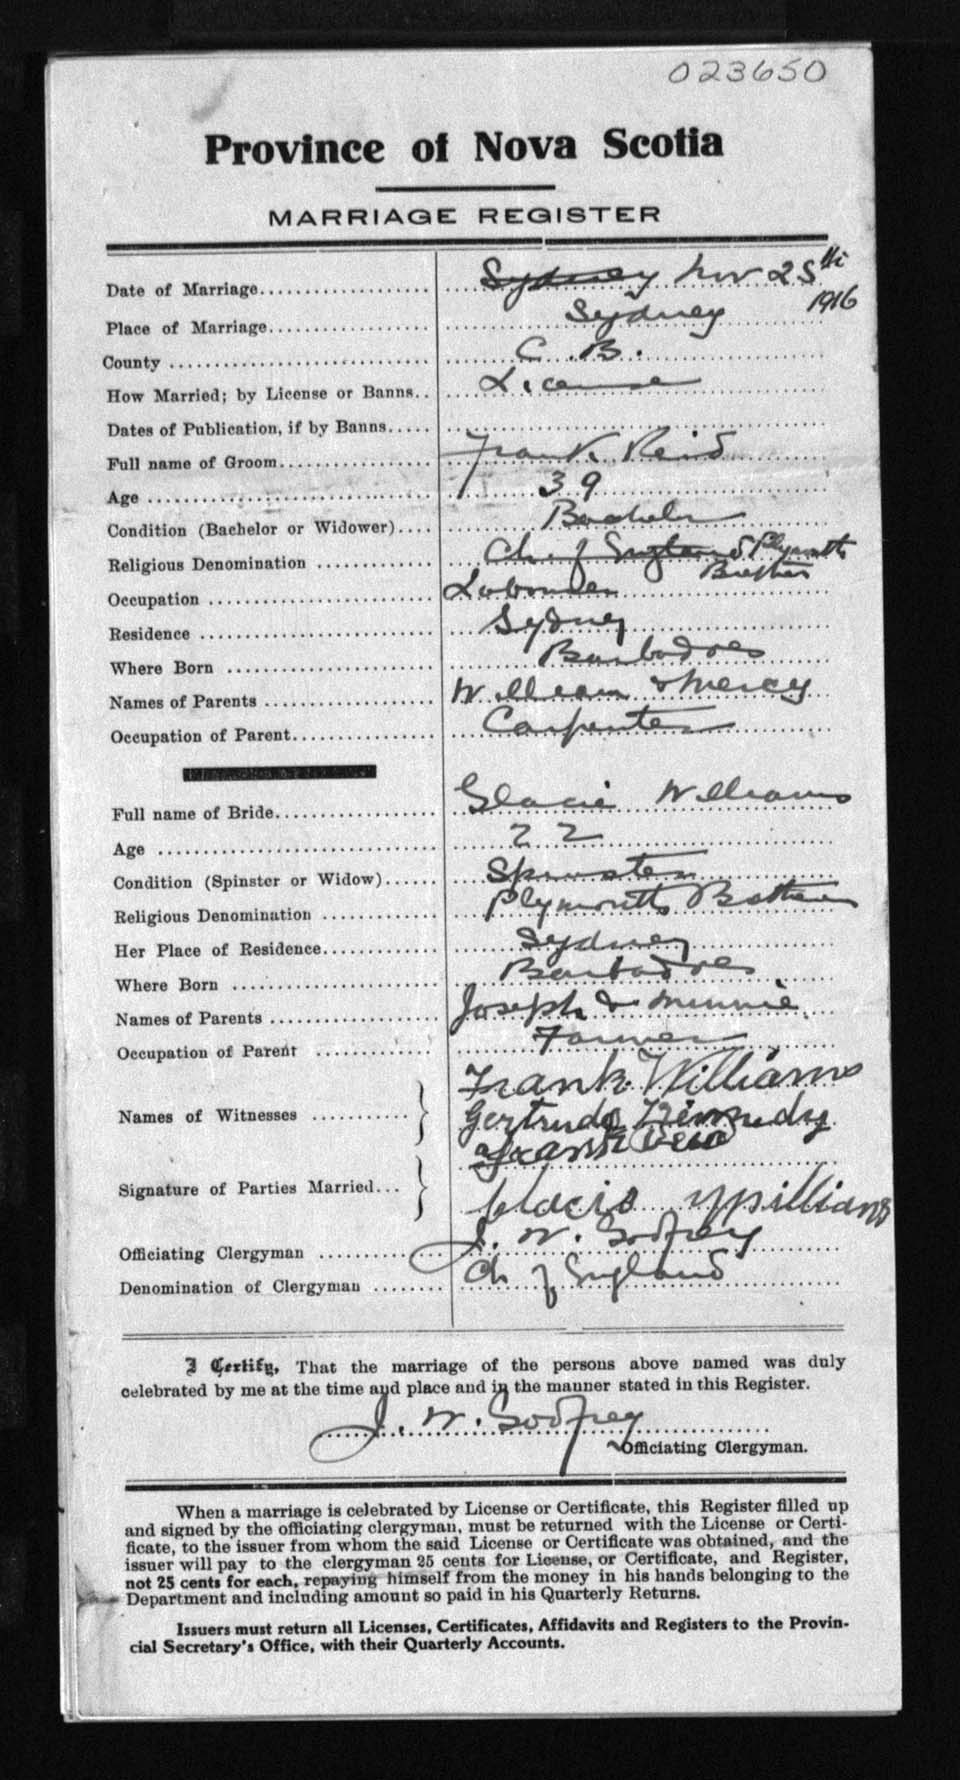 023650
Province of Nova Scotia
MARRIAGE REGISTER
Date of Marriage Sydney Nov 25th
1916
Place of Marriage Sydney
County C.B.
How Married; by License or Banns License
Dates of Publication, if by Banns
Full name of Groom Frank Reid
Age 39
Condition (Bachelor or Widower) Bachelor
Religious Denomination Ch of England Plymouth
Brethren
Occupation Labourer
Residence Sydney
Where Born Barbadoes
Names of Parents William & Mercy
Occupation of Parent Carpenter
Full name of Bride Williams
Age 22
Condition (Spinster or Widow) Spinster
Religious Denomination Plymouth Brethren
Her Place of Residence Sydney
Where Born Barbadoes
Names of Parents Joseph & Minnie
Occupation of Parent Farmer
Frank Williams
Names of Witnesses Gertrude Kennedy
Frank Reid
Signature of Parties Married Williams
Officiating Clergyman J. W. Godfrey
Denomination of Clergyman Ch of England
I Certify, That the marriage of the persons above named was duly
celebrated by me at the time and place and in the manner stated in this Register.
J. W. Godfrey
Officiating Clergyman.
When a marriage is celebrated by License or Certificate, this Register filled up
and signed by the officiating clergyman, must be returned with the License or Certi-
ficate, to the issuer from whom the said License or Certificate was obtained, and the
issuer will pay to the clergyman 25 cents for License, or Certificate, and Register,
not 25 cents for each, repaying himself from the money in his hands belonging to the
Department and including amount so paid in his Quarterly Returns.
Issuers must return all Licenses, Certificates, Affidavits and Registers to the Provin-
cial Secretary's Office, with their Quarterly Accounts.